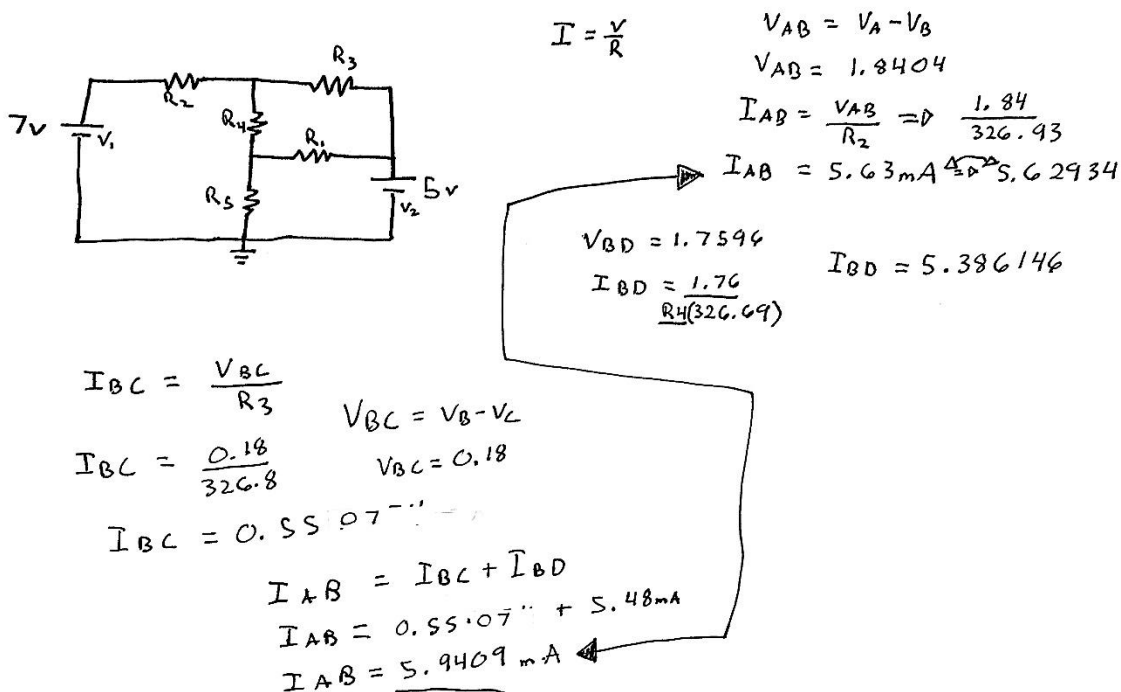 R3
R2
7v
V1
R4
R1
R5
5v
V2
I = V/R
VAB = VA - VB
VAB = 1.8404
IAB = VAB/R2 => 1.84/326.93
IAB = 5.63mA <=> 5.62934
VBD = 1.7596
IBD = 1.76/R4(326.69)
IBD = 5.386146
IBC = VBC/R3
VBC = VB - VC
IBC = 0.18/326.8
VBC = 0.18
IBC = 0.5507
IAB = IBC + IBD
IAB = 0.5507 + 5.48mA
IAB = 5.9409 mA